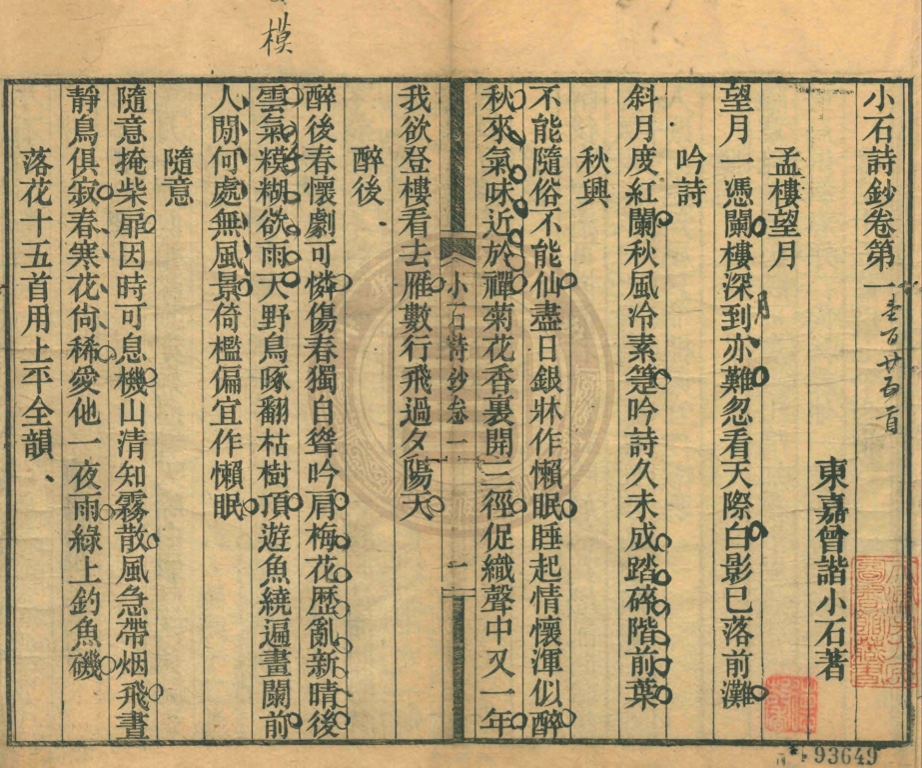 小石詩鈔卷第一 壹百廿五首
東嘉曾諧小石著
孟樓望月
望月一憑闌樓深到亦難忽看天際白影已落前灘
月
吟詩
斜月度紅闌秋風冷素箑吟詩久未成踏碎階前葉
秋興
不能隨俗不能仙盡日銀牀作懶眠睡起情懷渾似醉
秋來氣味近於禪菊花香裏開三徑促織聲中又一年
我欲登樓看去雁數行飛過夕陽天
小石詩鈔卷一
一
醉後
醉後春懷劇可憐傷春獨自聳吟肩梅花歷亂新晴後
雲氣糢糊欲雨天野鳥啄翻枯樹頂遊魚繞遍畫闌前
人閒何處無風景倚檻偏宜作懶眠
隨意
隨意掩柴扉因時可息機山清知霧散風急帶烟飛晝
靜鳥俱寂春寒花尙稀愛他一夜雨綠上釣魚磯
落花十五首用上平全韻、
模
93649